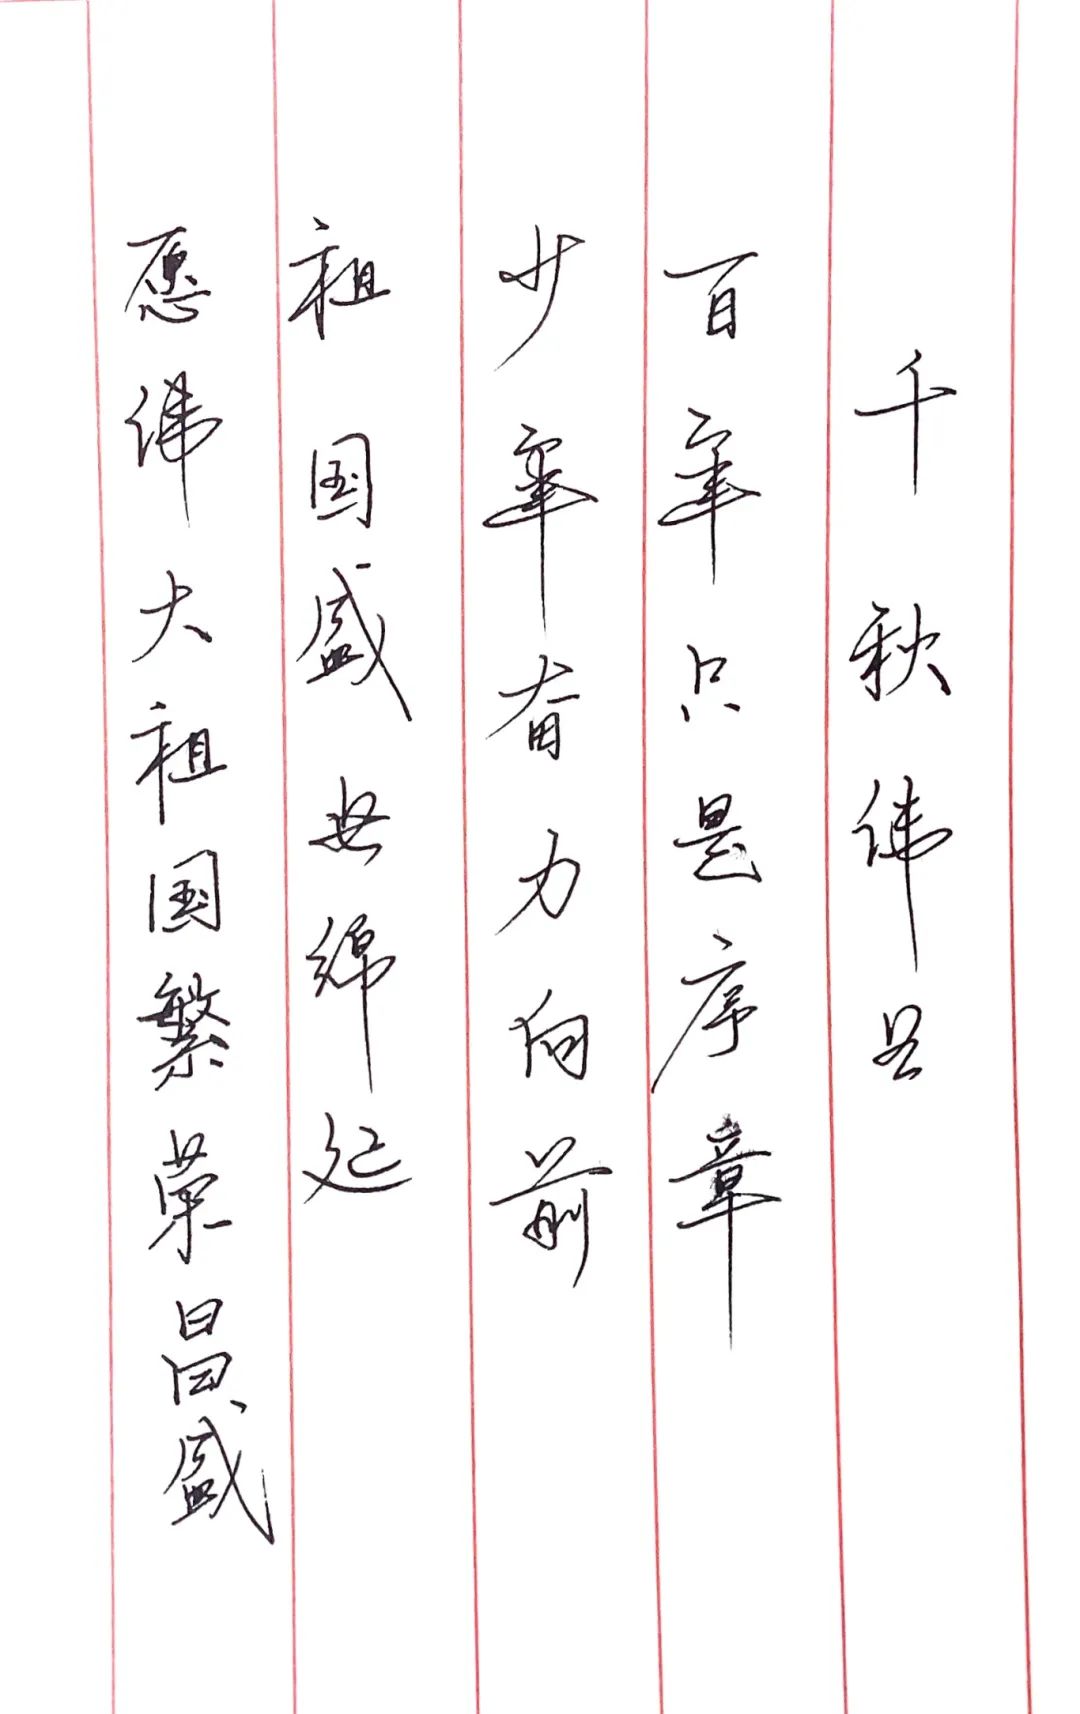 千秋伟业
百年只是序章
少年奋力向前
祖国盛世绵延
愿伟大祖国繁荣昌盛